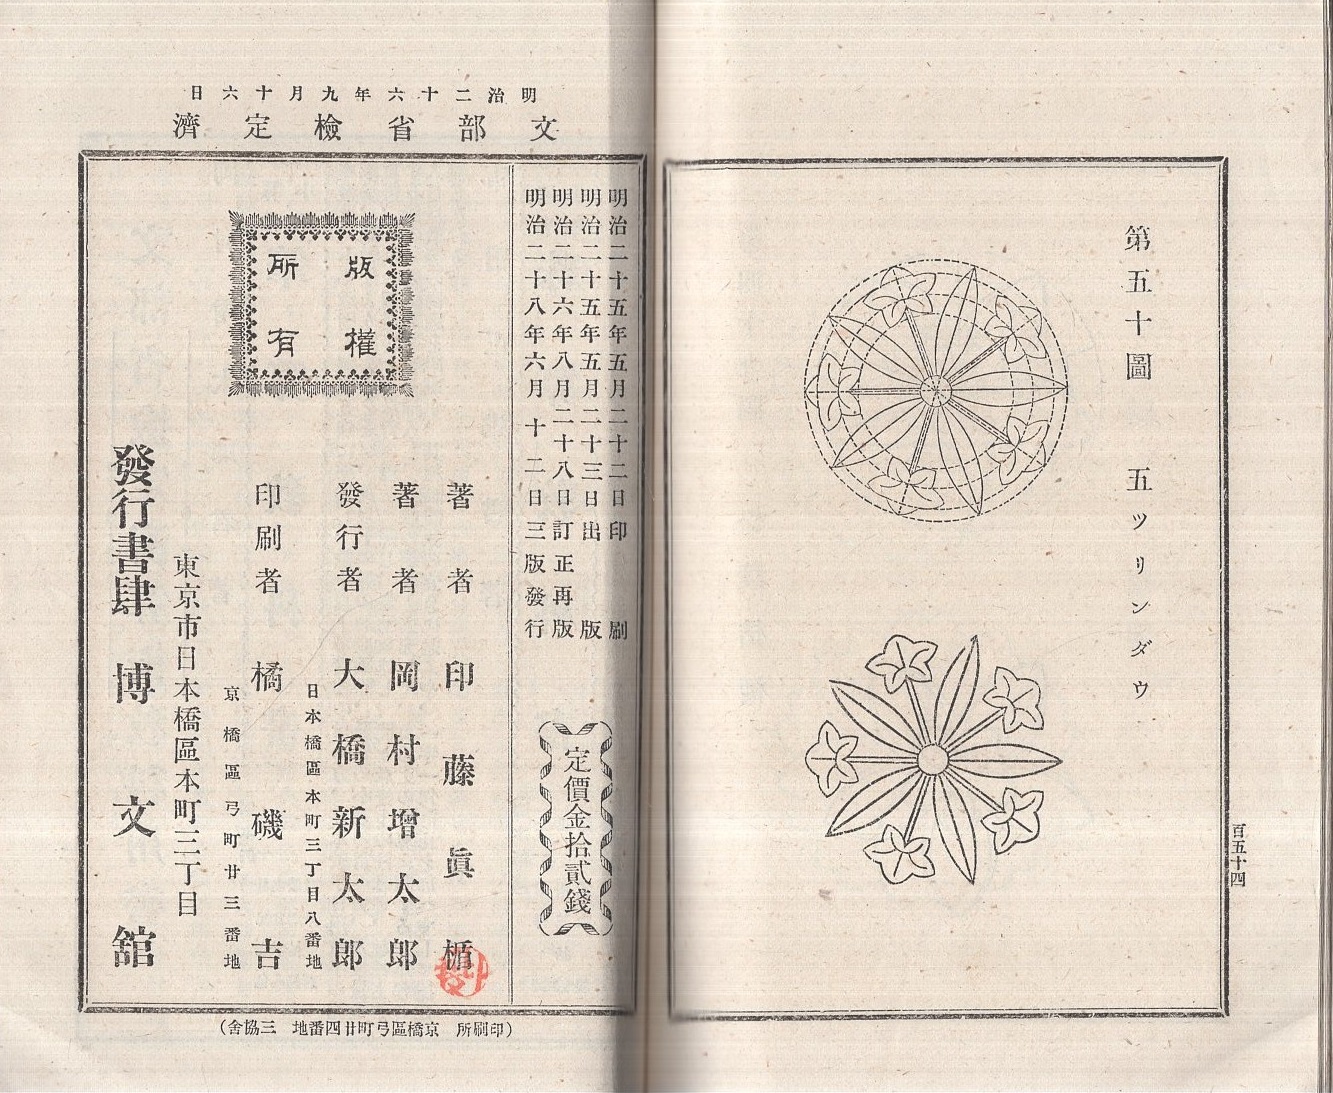 第五十圖　五ツリンダウ
百五十四
明治二十六年九月十六日
文部省檢定濟
明治二十五年五月二十二日印刷
明治二十五年五月二十三日出版
明治二十六年八月二十八日訂正再版
明治二十八年六月十二日三版發行
定價金拾貳錢
版權
所有
著者　印藤眞楯
著者　岡村增太郎
發行者　大橋新太郎
日本橋區本町三丁目八番地
印刷者　橘磯吉
京橋區弓町廿三番地
東京市日本橋區本町三丁目
發行書肆　博文舘
（印刷所　京橋區弓町廿四番地　三協舍）